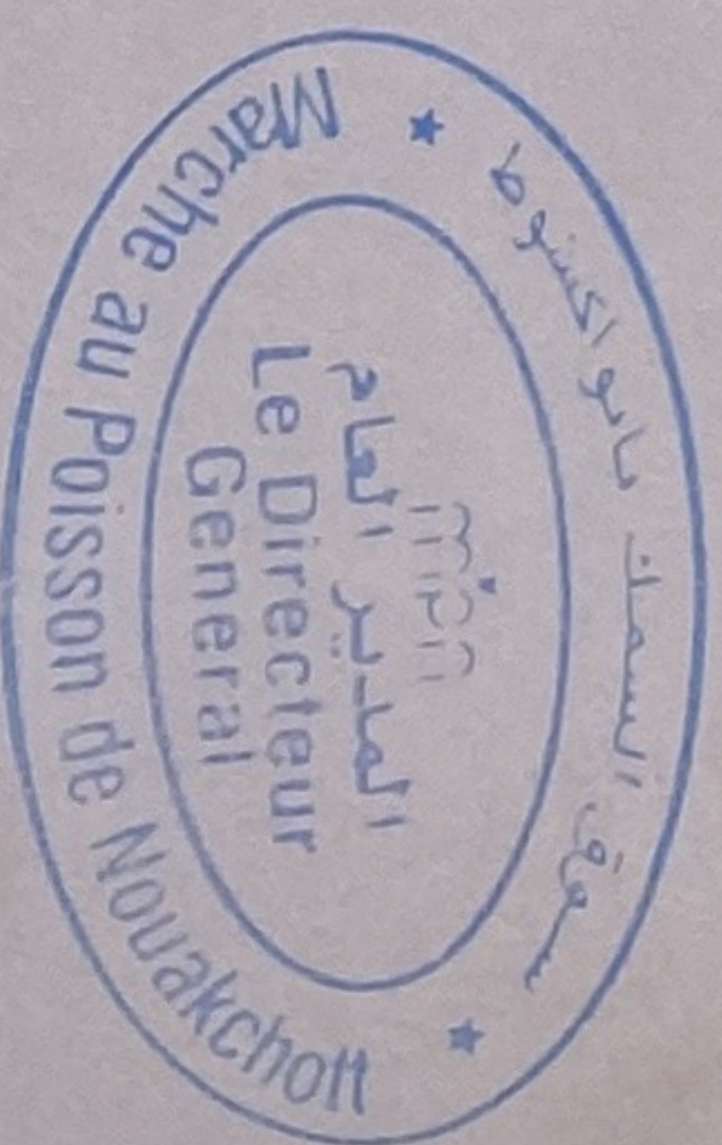 سوق السمك بانواكشوط
mpn
المدير العام
Le Directeur
General
Marche au Poisson de Nouakchott